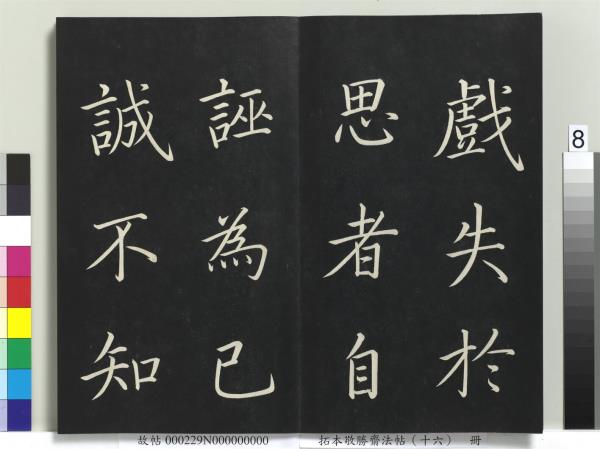 戲失於
思者自
誣為己
誠不知
8
故帖 000229N000000000
拓本敬勝齋法帖（十六） 冊